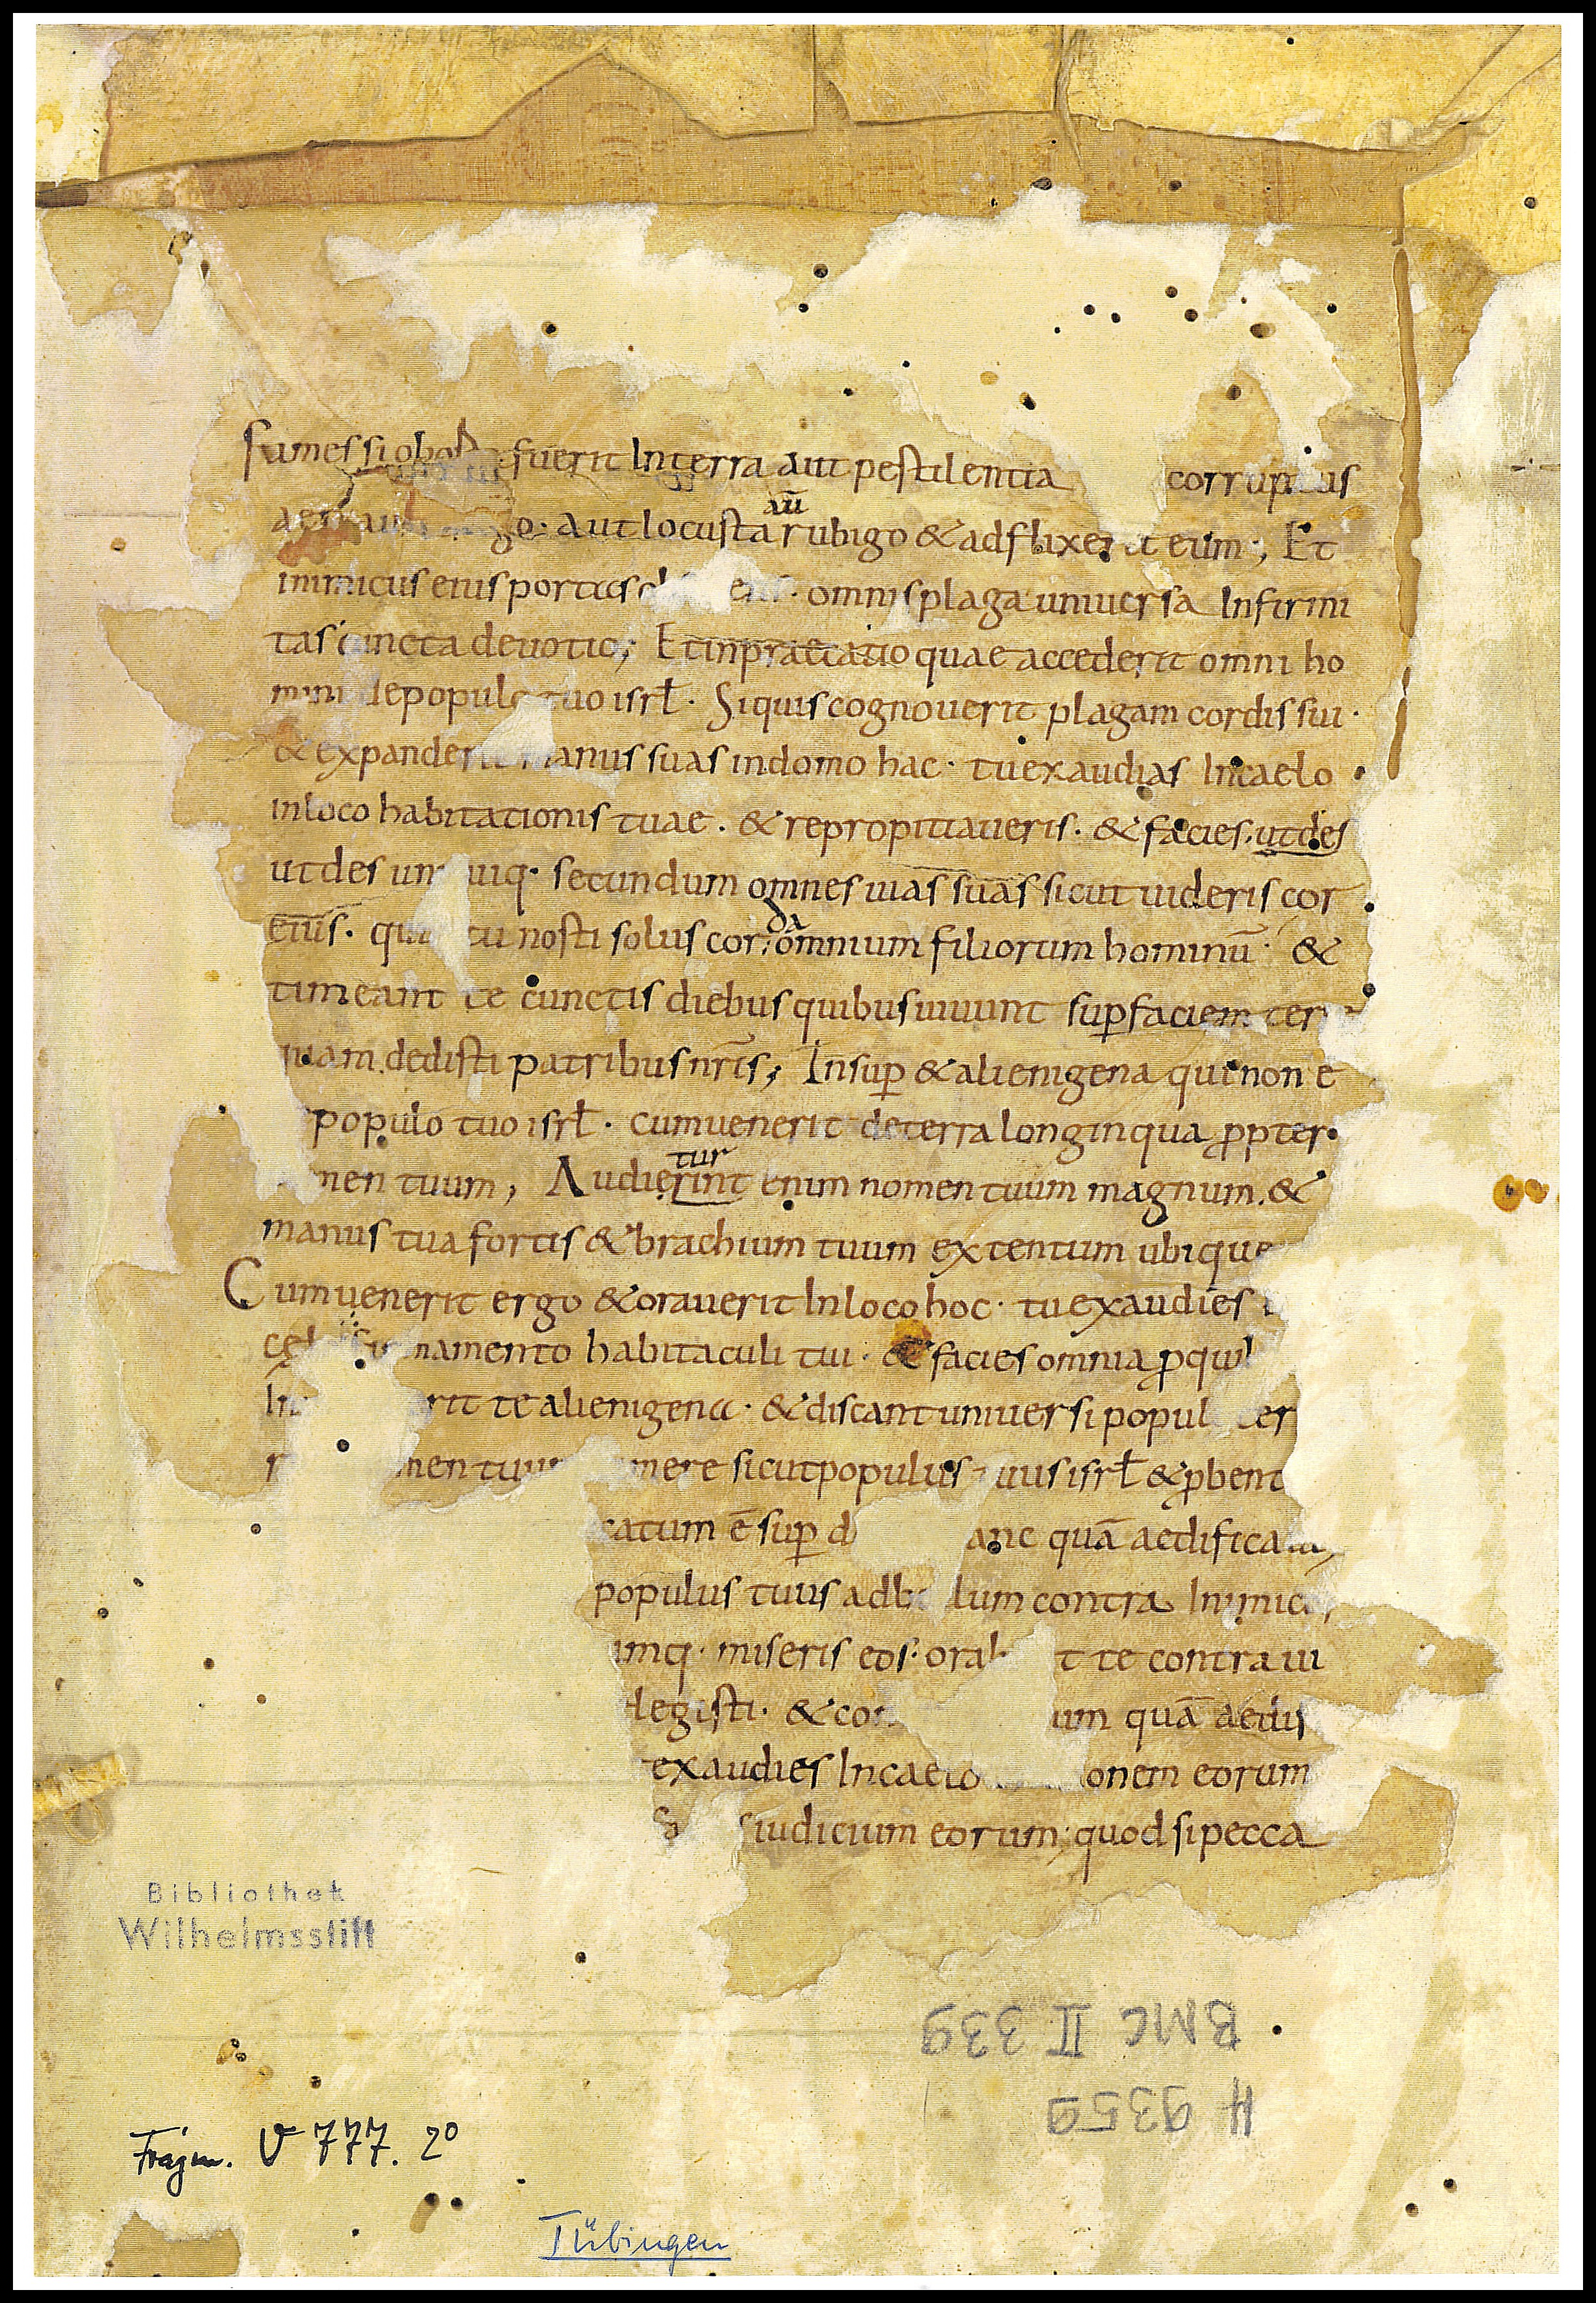 fames si obor fuerit In terra aut pestilentia corruptus
aer au ge · aut locusta aū rubigo & adflixerit eum ; Et
inimicus eius portas ens · omnis plaga uniuersa Infirmi
tas cuncta deuotio ; Et inpraecatio quae accederit omni ho
mini depopulo tuo isrł · Si quis cognouerit plagam cordis sui ·
& expanderit manus suas in domo hac · tu exaudias In caelo
in loco habitationis tuae . & repropitiaueris . & facies . ut des
ut des un uiq · secundum omnes uias suas sicut uideris cor
eius · quia tu nosti solus cor da omnium filiorum hominū · &
timeant te cunctis diebus quibus uiuunt sup faciem ter
quam dedisti patribus nr̄is ; Insup & alienigena qui non e
populo tuo isrł · cum uenerit de terra longinqua ppter
men tuum , Audierint tur enim nomen tuum magnum . &
manus tua fortis & brachium tuum extentum ubique
Cum uenerit ergo & orauerit In loco hoc · tu exaudies
cęl namento habitaculi tui · & facies omnia p quib
rit te alienigena · & discant uniuersi popul ter
men tuum mere sicut populus tuus isrł & pbent
catum ē sup d anc quā aedificaui
populus tuus ad bellum contra Inimic
umq · miseris eos · orab t te contra ui
legisti · & co um quā aedif
exaudies In caelo onem eorum
iudicium eorum ; quod si pecca
Bibliothek
Wilhelmsstift
BMC II 339
H 9359
Fragm. V 777. 2º
Tübingen